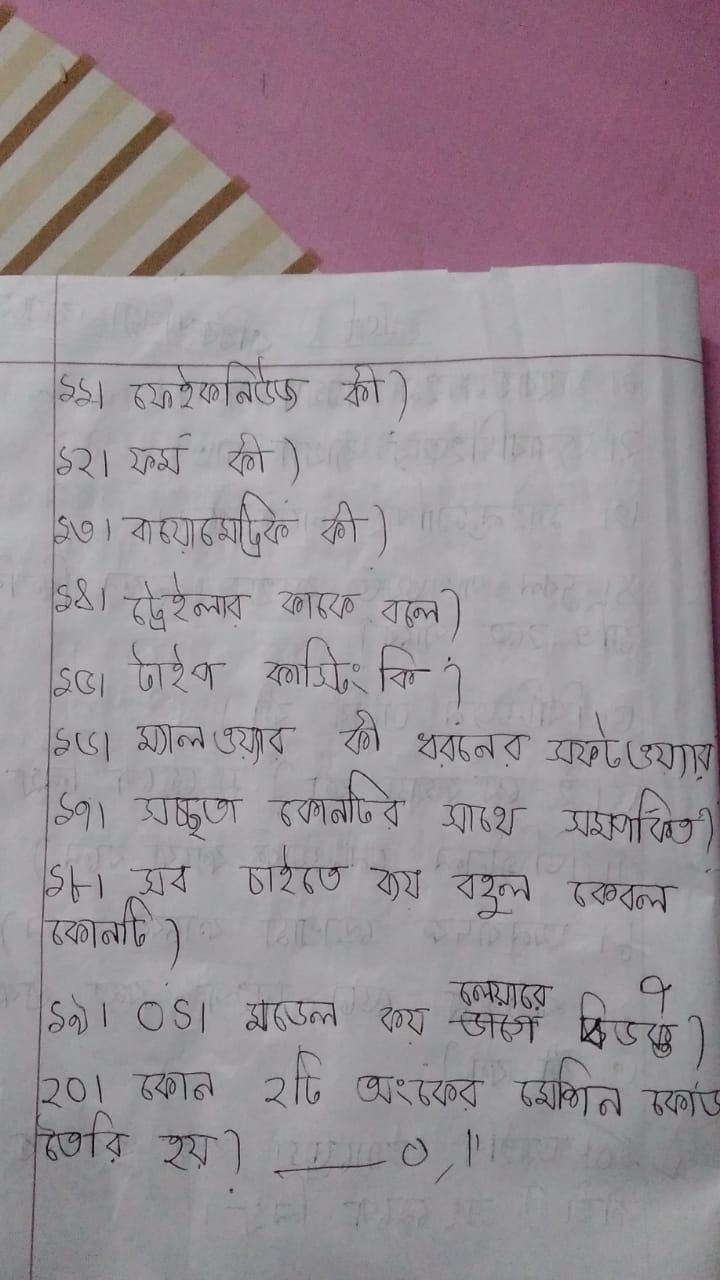 ১১। ফেইকনিউজ কী?
১২। ফর্ম কী?
১৩। বায়োমেট্রিক কী?
১৪। ট্রেইলার কাকে বলে?
১৫। টাইপ কাস্টিং কি?
১৬। ম্যালওয়্যার কী ধরনের সফটওয়্যার
১৭। কোনটির সাথে সম্পর্কিত?
১৮। সব চাইতে ব্যয় বহুল কেবল
কোনটি?
লেয়ারে ৭
১৯। OSI মডেল কয় ভাগে বিভক্ত?
২০। কোন ২টি অংকের মেশিন কোড
তৈরি হয়? ০,১